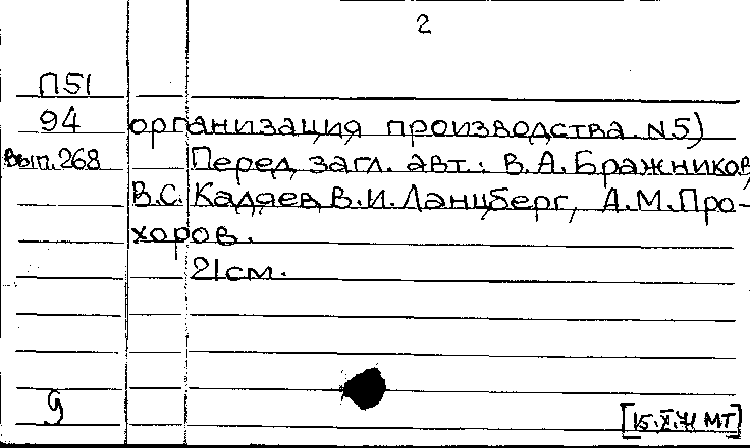 2
П51
94 организация производства. N5)
Вып.268 Перед загл. авт.: В.А.Бражников,
В.С. Кадяев, В.И.Ланцберг, А.М.Про-
хоров.
21см.
9
[15.X.71 МТ]